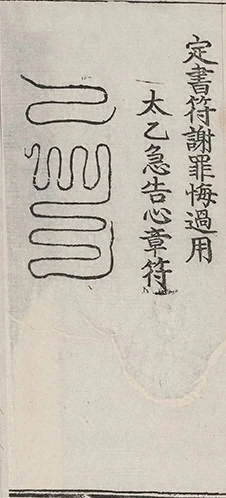 定書符謝罪悔過用
太乙急告心章符